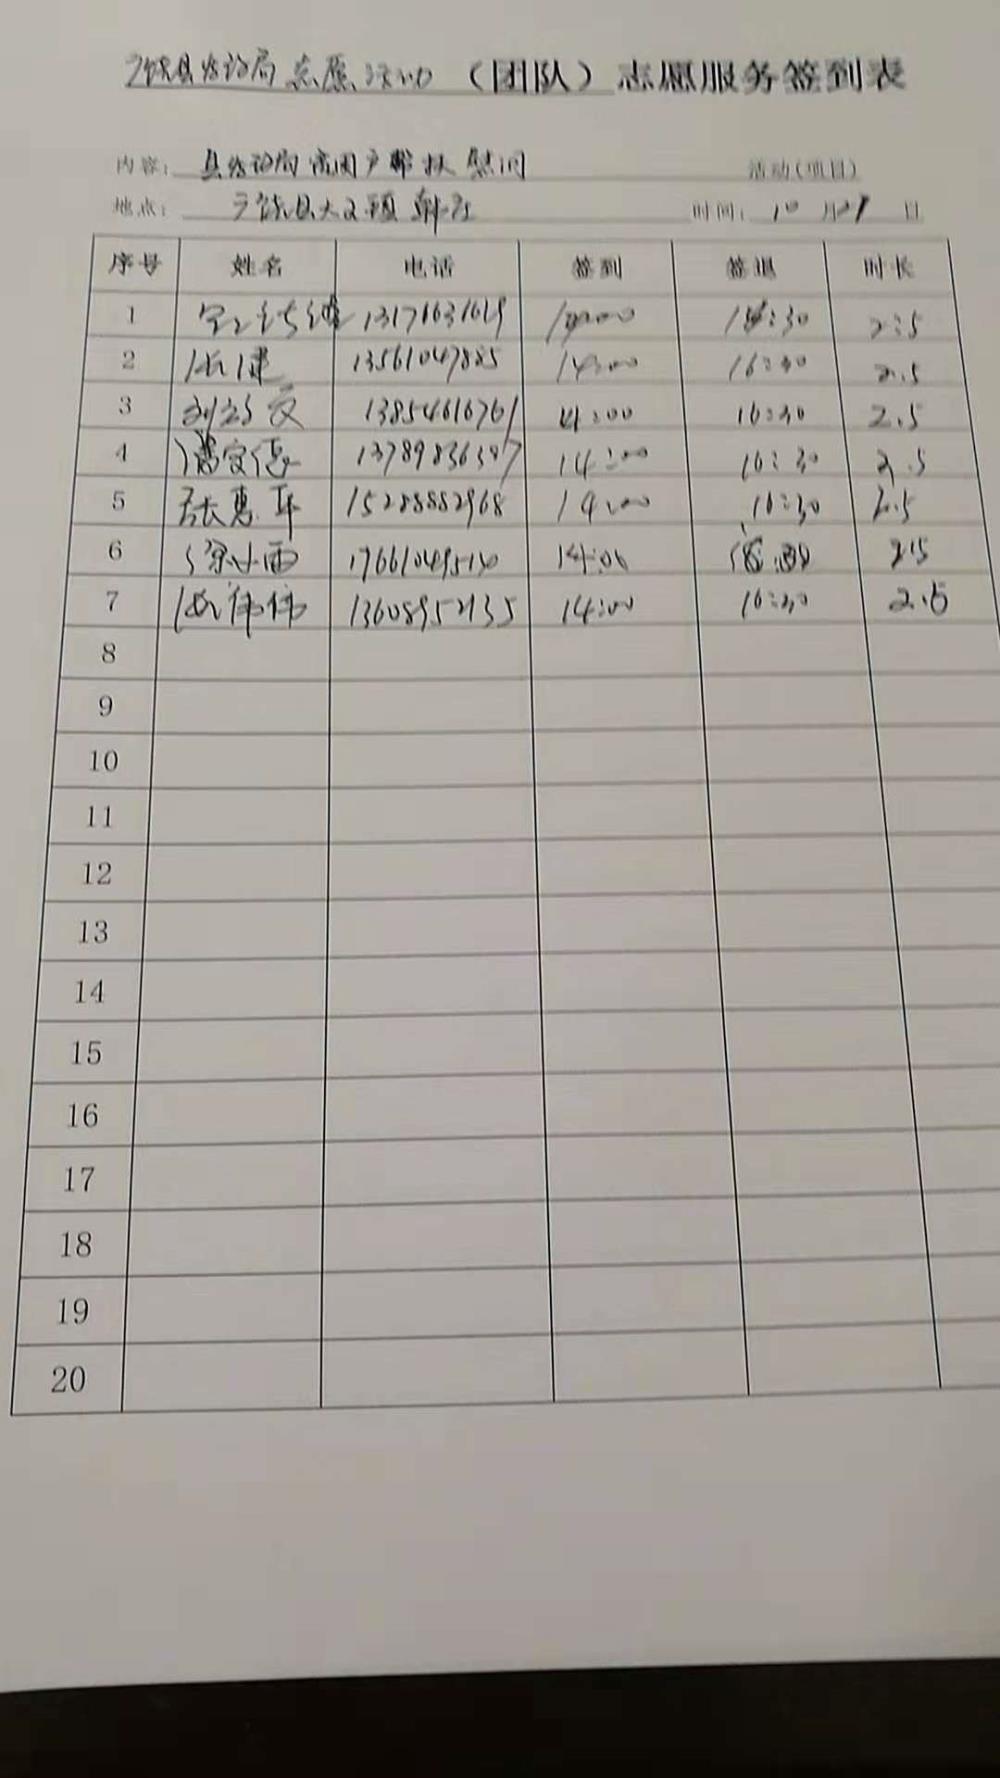 广饶县信访局志愿活动（团队）志愿服务签到表
内容：县信访局 困户帮扶 慰问 活动(项目)
地点：广饶县大王镇 时间：10月 日
序号 姓名 电话 签到 签退 时长
1 13:30 2.5
2 张建 13561047885 14:00 16:30 2.5
3 刘 13854616761 14:00 16:30 2.5
4 14:00 16:30 2.5
5 张惠 15288882968 14:00 16:30 2.5
6 徐小雨 14:00 2.5
7 张伟伟 13608952135 14:00 16:30 2.5
8
9
10
11
12
13
14
15
16
17
18
19
20